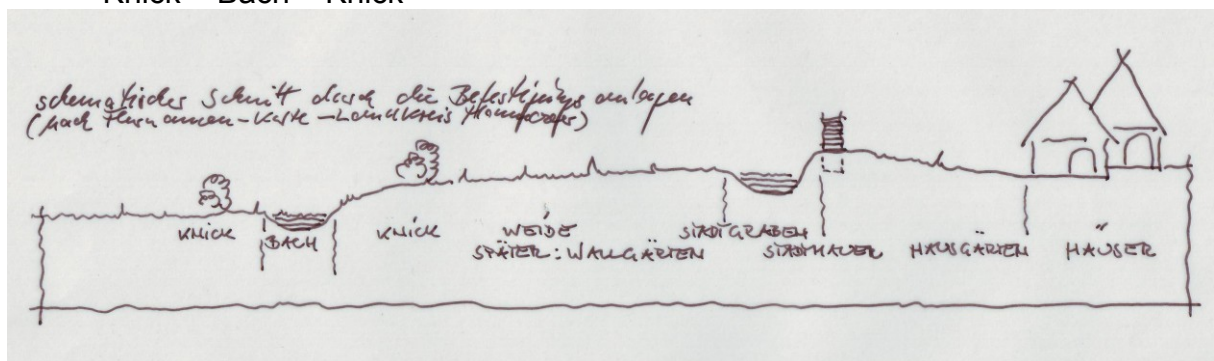 Knick – Bach – Knick
schematischer Schnitt durch die Befestigungsanlagen
(nach Flurnamen-Karte-Landkreis
KNICK
BACH
KNICK
WEIDE
SPÄTER: WALLGÄRTEN
STADTGRABEN
STADTMAUER
HAUSGÄRTEN
HÄUSER